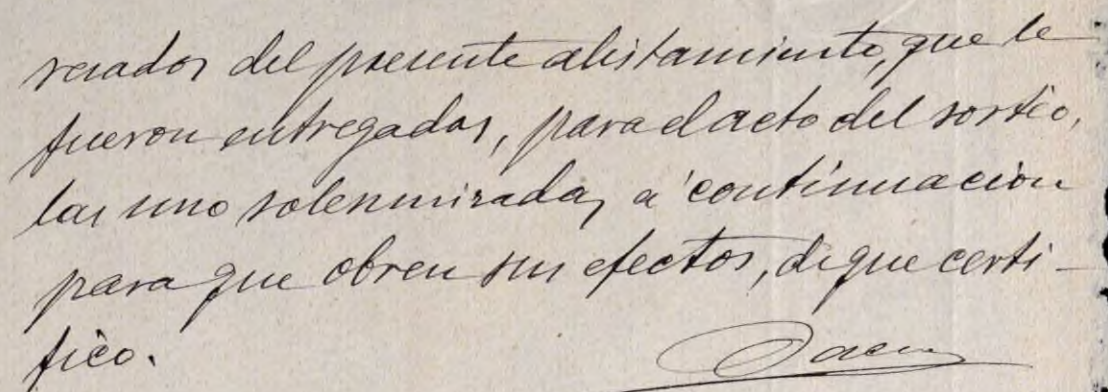 resados del presente alistamiento, que le
fueron entregadas, para el acto del sorteo,
las uno solemnizadas, á continuacion
para que obren sus efectos, de que certi-
fico.